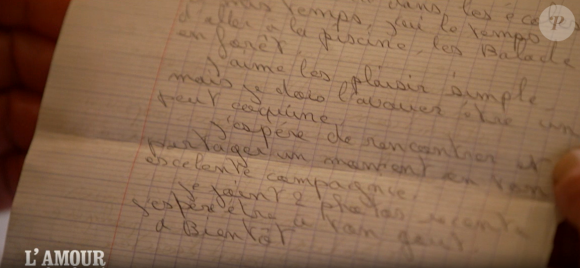 temps, j'ai le temps
d'aller a la piscine, les Balade
en forêt
j'aime les plaisir simple
mais je dois l'avouer être un
peut coquine
j'espére de rencontrer et
partager un moment en ton
escelente compagnie
je joint 2 photos recente
j'espére être a ton gout
a Bientôt
P
purepeople
L'AMOUR